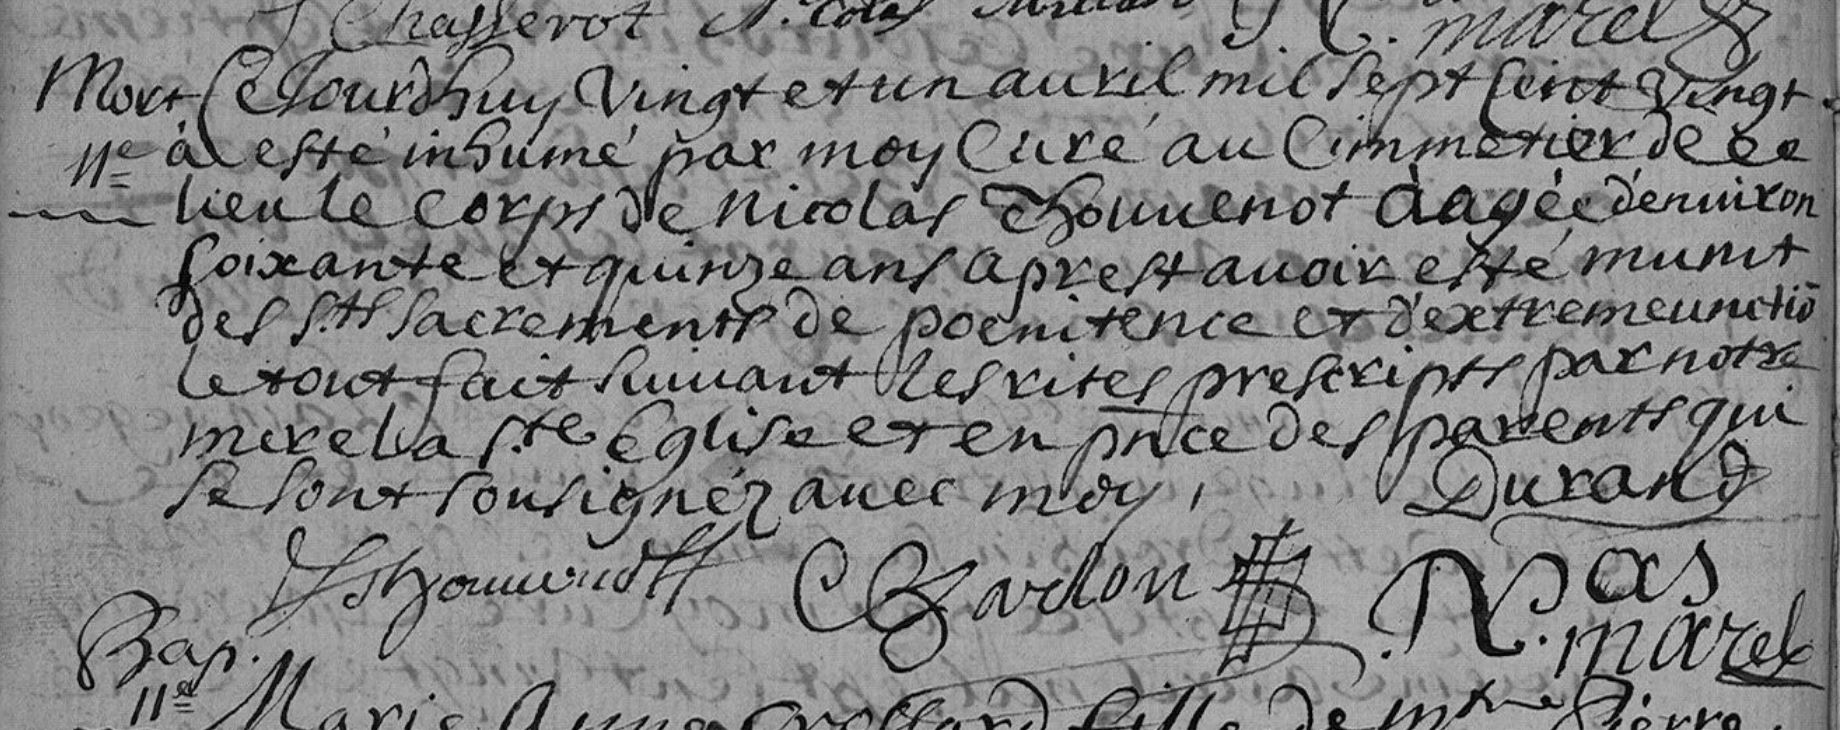 J Chasserot N. Colas marel
Mort Ce Jourdhuy Vingt et un auvril mil sept Cent Vingt
11e à esté inhumé par moy Curé au Cimmetier de ce
lieu le corps de Nicolas Thouvenot àagée denuiron
soixante et quinze ans aprest auoir esté munit
des sts sacrements de poenitence et d'extremeunctiō
le tout fait suiuant les rites prescripts par notre
mere la ste Eglise et en pnce des parents qui
se sont sousignéz auec moy,
Durand
Thouuenot C Bardon Nas
marel
Bap.
11e Marie Anne fille de mtre Pierre